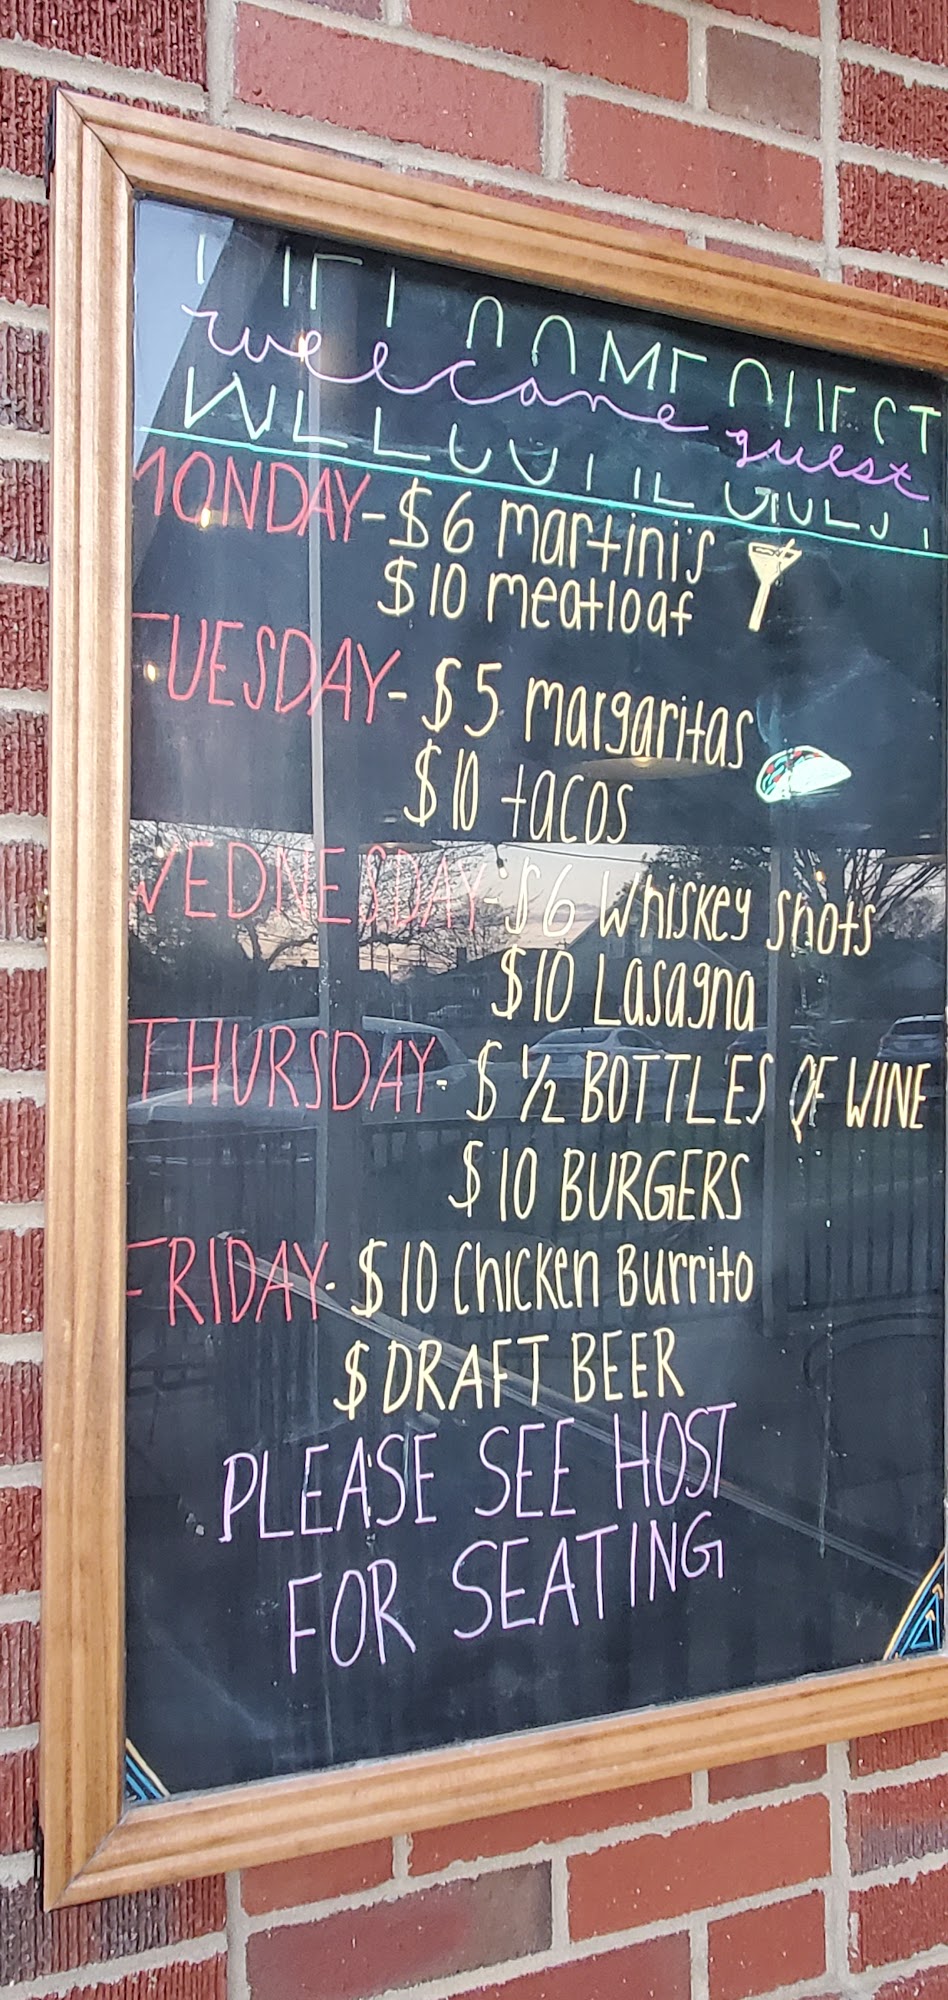 welcome guest
MONDAY-$6 martini's
$10 meatloaf
TUESDAY- $5 margaritas
$10 tacos
WEDNESDAY-$6 Whiskey shots
$10 Lasagna
THURSDAY- $ 1/2 BOTTLES OF WINE
$10 BURGERS
FRIDAY- $10 Chicken Burrito
$DRAFT BEER
PLEASE SEE HOST
FOR SEATING